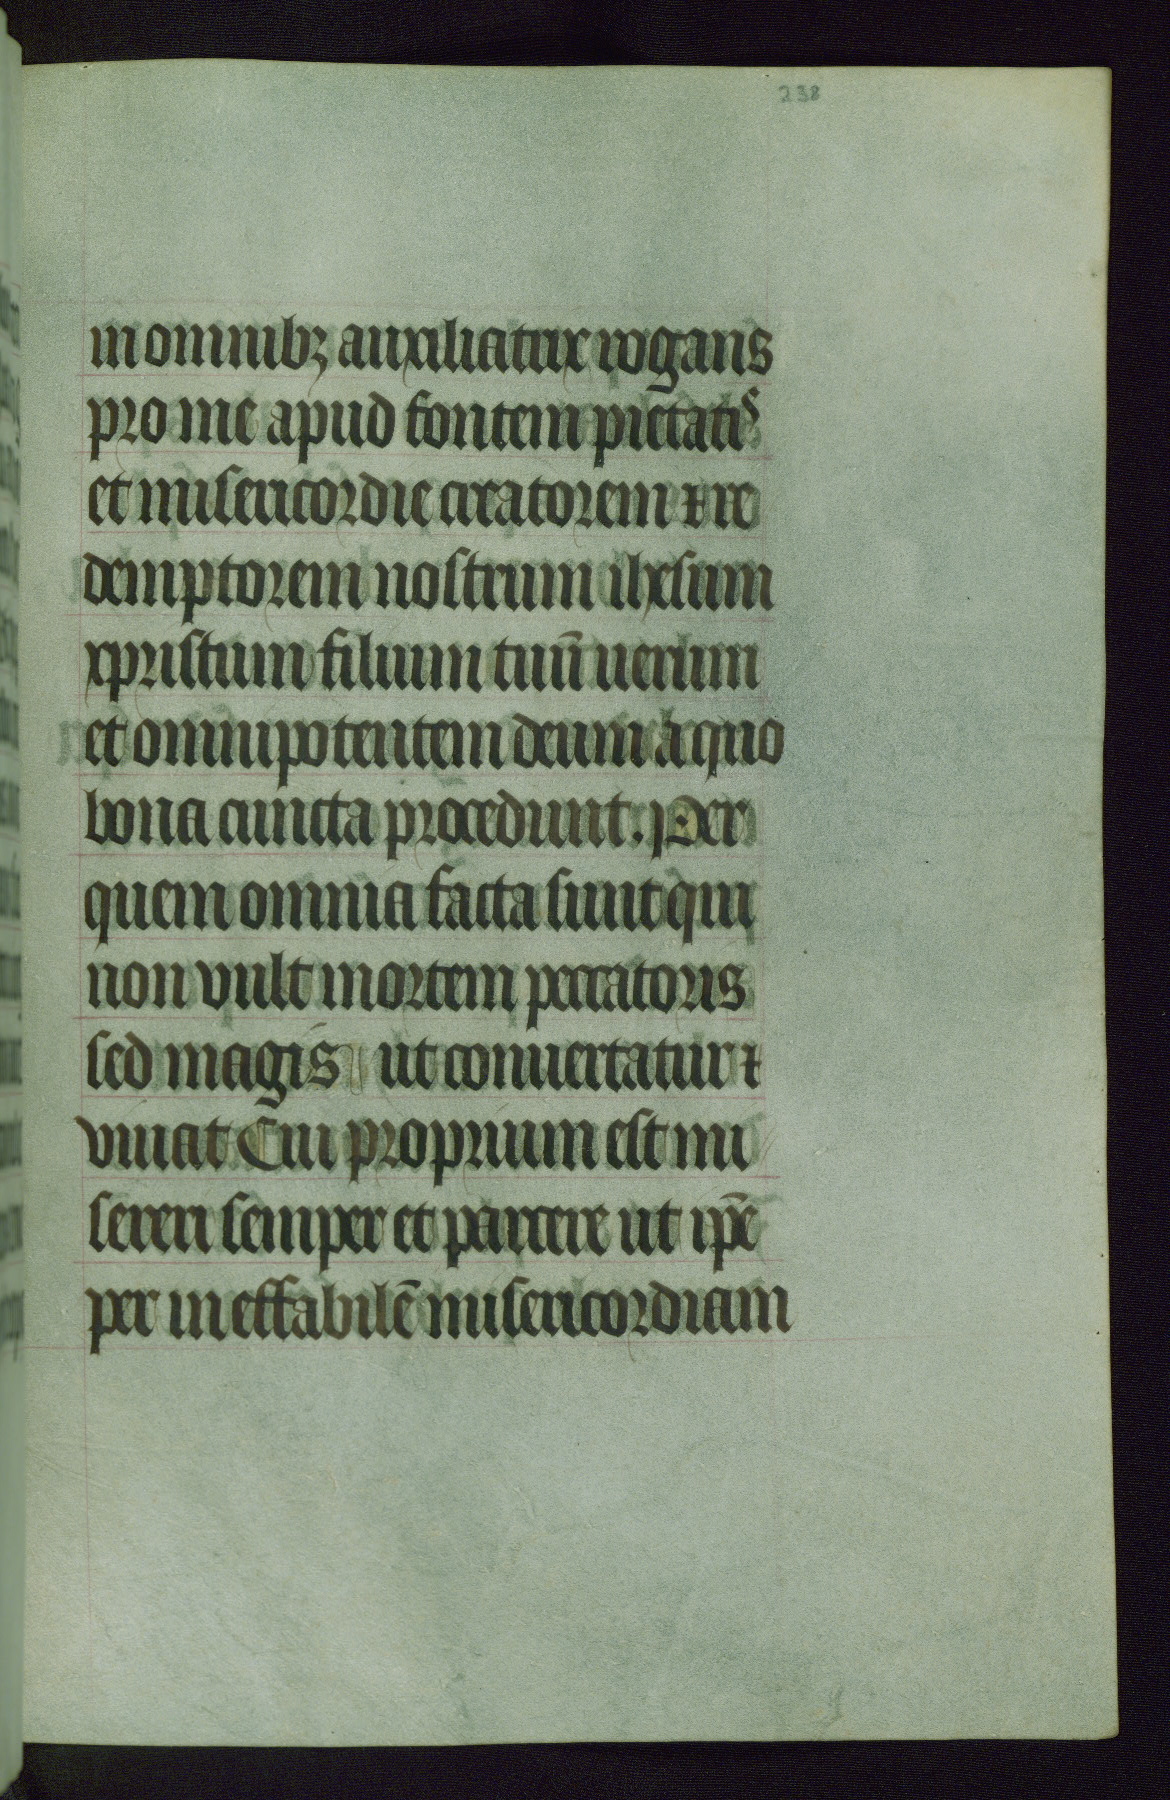 238
in omnibꝫ auxiliatrix rogans
pro me apud fontem pietatis
et misericordie creatorem ⁊ re
demptorem nostrum ihesum
xpristum filium tuū uerum
et omnipotentem deum a quo
bona cuncta procedunt. Per
quem omnia facta sunt qui
non vult mortem peccatoris
sed magis ut conuertatur ⁊
viuat Cui proprium est mi
sereri semper et parcere ut ip̄e
per ineffabilē misericordiam